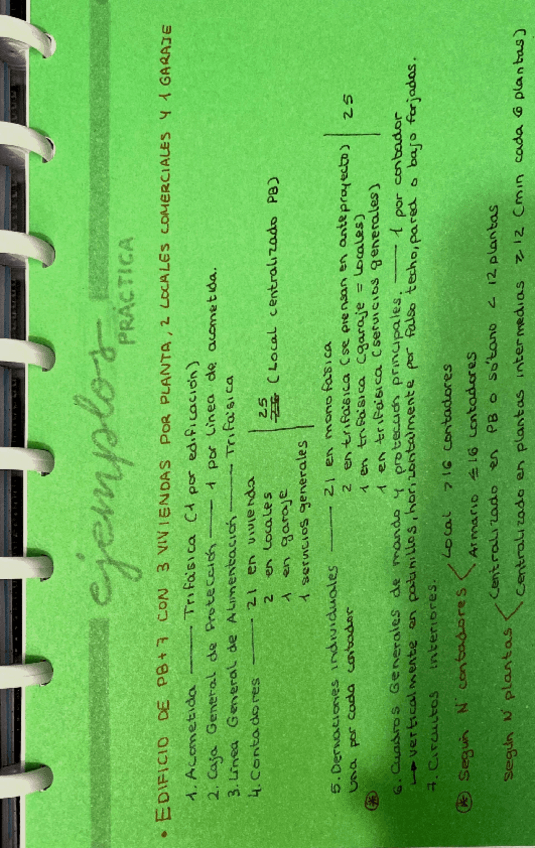 ejemplos
PRÁCTICA
• EDIFICIO DE PB+7 CON 3 VIVIENDAS POR PLANTA, 2 LOCALES COMERCIALES Y 1 GARAJE
1. Acometida — Trifásica (1 por edificación)
2. Caja General de Protección — 1 por Línea de acometida.
3. Línea General de Alimentación — Trifásica
4. Contadores — 21 en vivienda
2 en locales
1 en garaje
1 servicios generales
25 (Local centralizado PB)
5. Derivaciones individuales — 21 en monofásica
una por cada contador
2 en trifásica (se piensan en anteproyecto)
1 en trifásica (garaje = locales)
1 en trifásica (servicios generales)
25
*
6. Cuadros Generales de mando y protección principales. — 1 por contador
→ verticalmente en patinillos, horizontalmente por falso techo, pared o bajo forjados.
7. Circuitos interiores.
* Según Nº contadores < Local > 16 contadores
Armario ≤ 16 contadores
Según Nº plantas < Centralizado en PB o sótano < 12 plantas
Centralizado en plantas intermedias ≥ 12 (min cada 6 plantas)